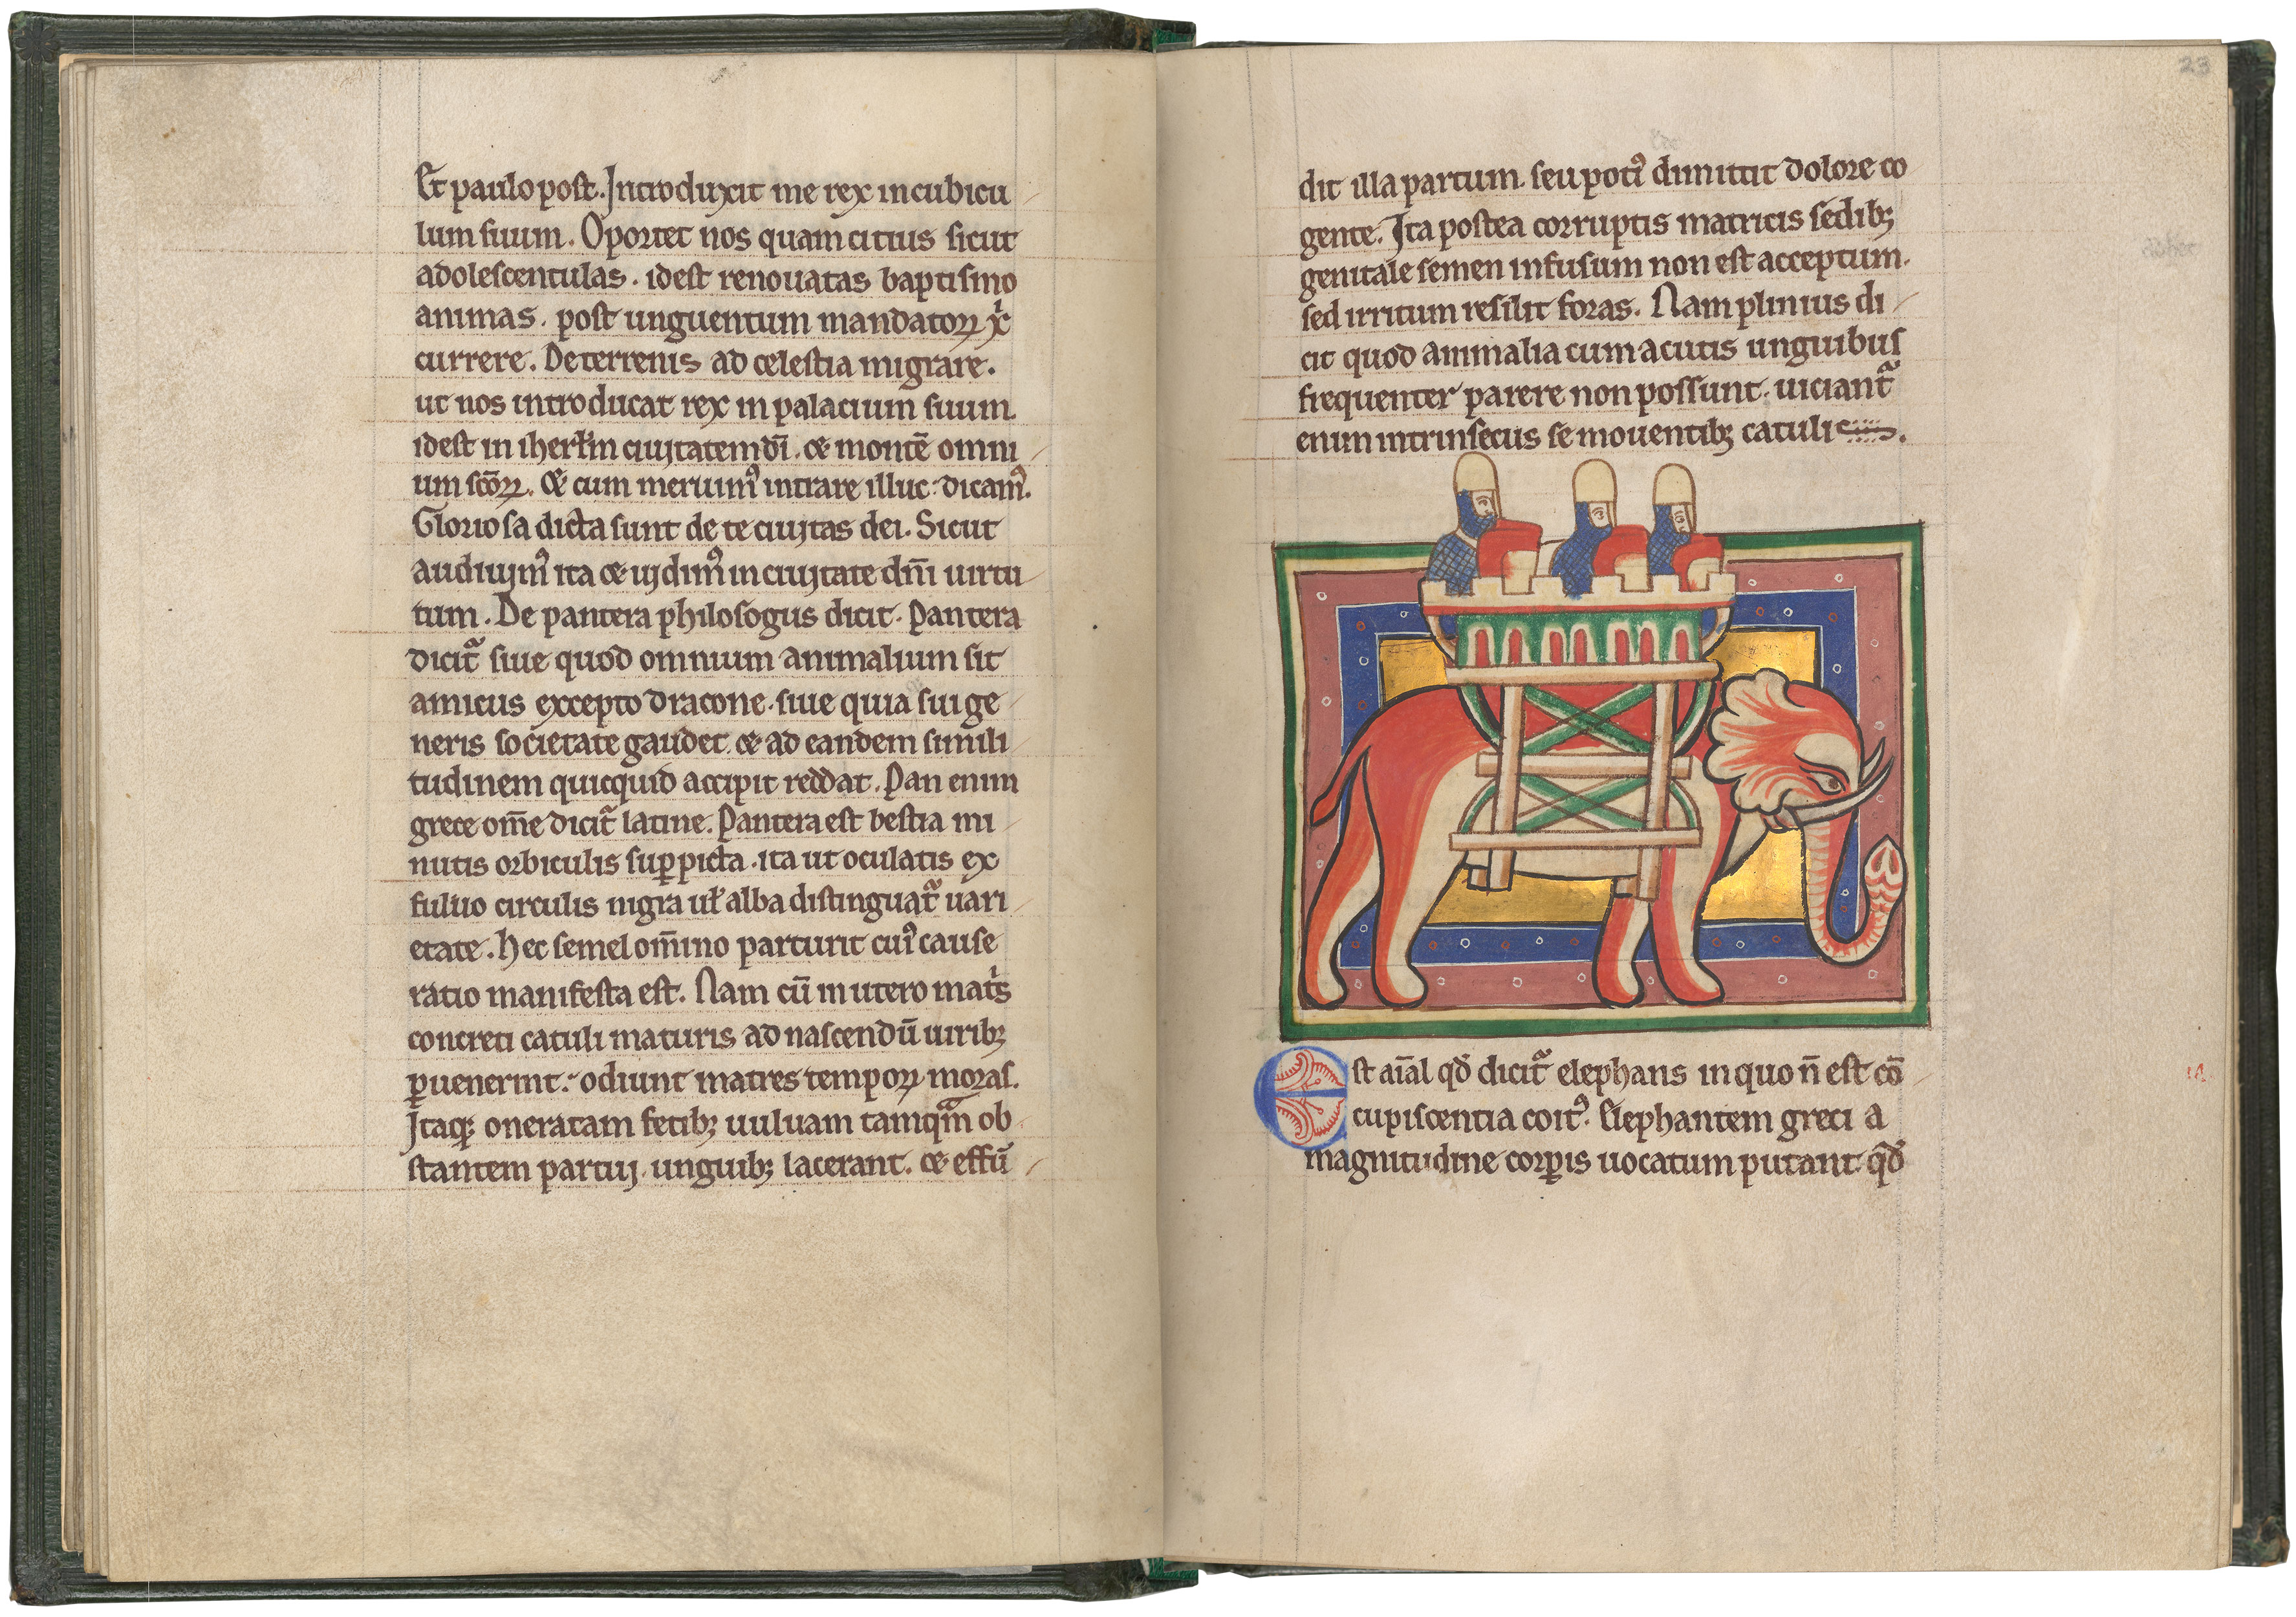 Et paulo post. Introduxit me rex in cubicu
lum suum. Oportet nos quam citius sicut
adolescentulas. idest renouatas baptismo
animas. post unguentum mandatoꝝ xi
currere. De terrenis ad celestia migrare.
ut nos introducat rex in palacium suum
idest in iherłm ciuitatem dī. & montē omni
um scōꝝ. & cum meruimꝰ intrare illuc. dicamꝰ.
Gloriosa dicta sunt de te ciuitas dei. Sicut
audiuimꝰ ita & uidimꝰ in ciuitate dn̄i uirtu
tum. De pantera philosogus dicit. Pantera
dicit᷑ siue quod omnium animalium sit
amicus excepto dracone. siue quia sui ge
neris societate gaudet. & ad eandem simili
tudinem quicquid accipit reddat. Pan enim
grece om̄e dicit᷑ latine. Pantera est bestia mi
nutis orbiculis suꝑpicta. ita ut oculatis ex
fuluo circulis nigra uł alba distinguat᷑ uari
etate. Hec semel om̄ino parturit cuiꝰ cause
ratio manifesta est. Nam cū in utero mat͛s
concreti catuli maturis ad nascendū uiribꝫ
ꝑuenerint. odiunt matres tempoꝝ moras.
Itaqꝫ oneratam fetibꝫ uuluam tamqm̄ ob
stantem partui. unguibꝫ lacerant. & effū
23
dit illa partum. seu potiꝰ dimittit dolore co
gente. Ita postea corruptis matricis sedibꝫ
genitale semen infusum non est acceptum.
sed irritum resilit foras. Nam plinius di
cit quod animalia cum acutis unguibus
frequenter parere non possunt. uiciant᷑
enim intrinsecus se mouentibꝫ catulis.
Est aīal qd̄ dicit᷑ elephans in quo n̄ est cō
cupiscentia coitꝰ. Elephantem greci a
magnitudine corꝑis uocatum putant. qd̄